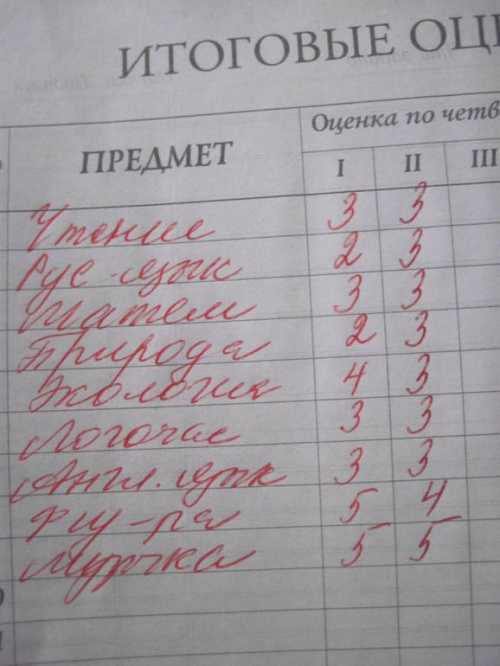 ИТОГОВЫЕ ОЦ
ПРЕДМЕТ
Оценка по четв
I II III
Чтение 3 3
Рус. язык 2 3
Матем 3 3
Природа 2 3
Экология 4 3
Логочас 3 3
Англ. язык 3 3
Физ-ра 5 4
Музыка 5 5